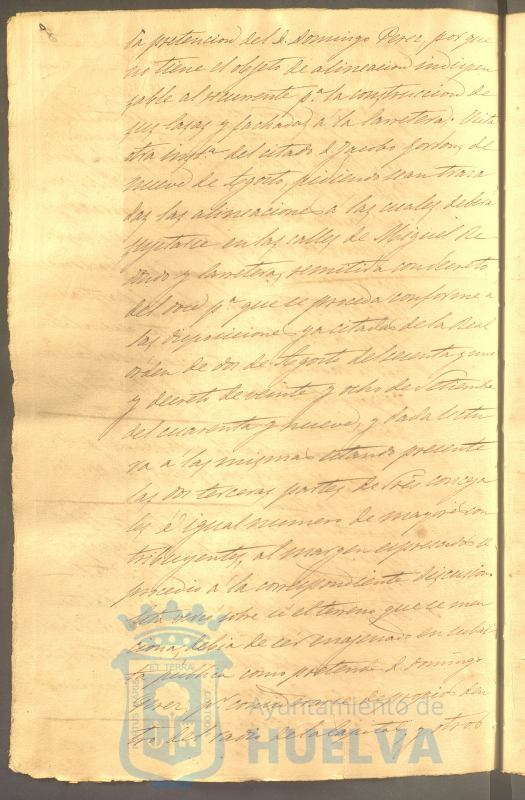 la pretencion del D. Domingo Perez, por que
no tiene el objeto de alineacion indispen
sable al recurrente pª. la construccion de
sus casas y fachadas a la carretera. Vista
otra instª. del citado D. Jacobo Gorlon, de
nueve de Agosto, pidiendo sean traza
das las alineaciones a las cuales deberá
sujetarse en las calles de Miguel Re
dondo y Carretera, remitida con decreto
del doce pª. que se proceda conforme a
las disposiciones ya citadas de la Real
orden de dos de Agosto del sesenta y uno
y decreto de veinte y ocho de Setiembre
del cuarenta y nueve, y dada lectu
ra a las mismas estando presente
las dos terceras partes de Sres conceja
les é igual numero de mayores con
tribuyentes, al margen espresados se
procedio a la correspondiente discusion
sobre si el terreno que se men
ciona, debia de ser enagenado en subas
ta publica como pretende D. Domingo
Perez, por considerarse de propios den
tro del radio de la y otros
ET TERRAE
Ayuntamiento de
HUELVA